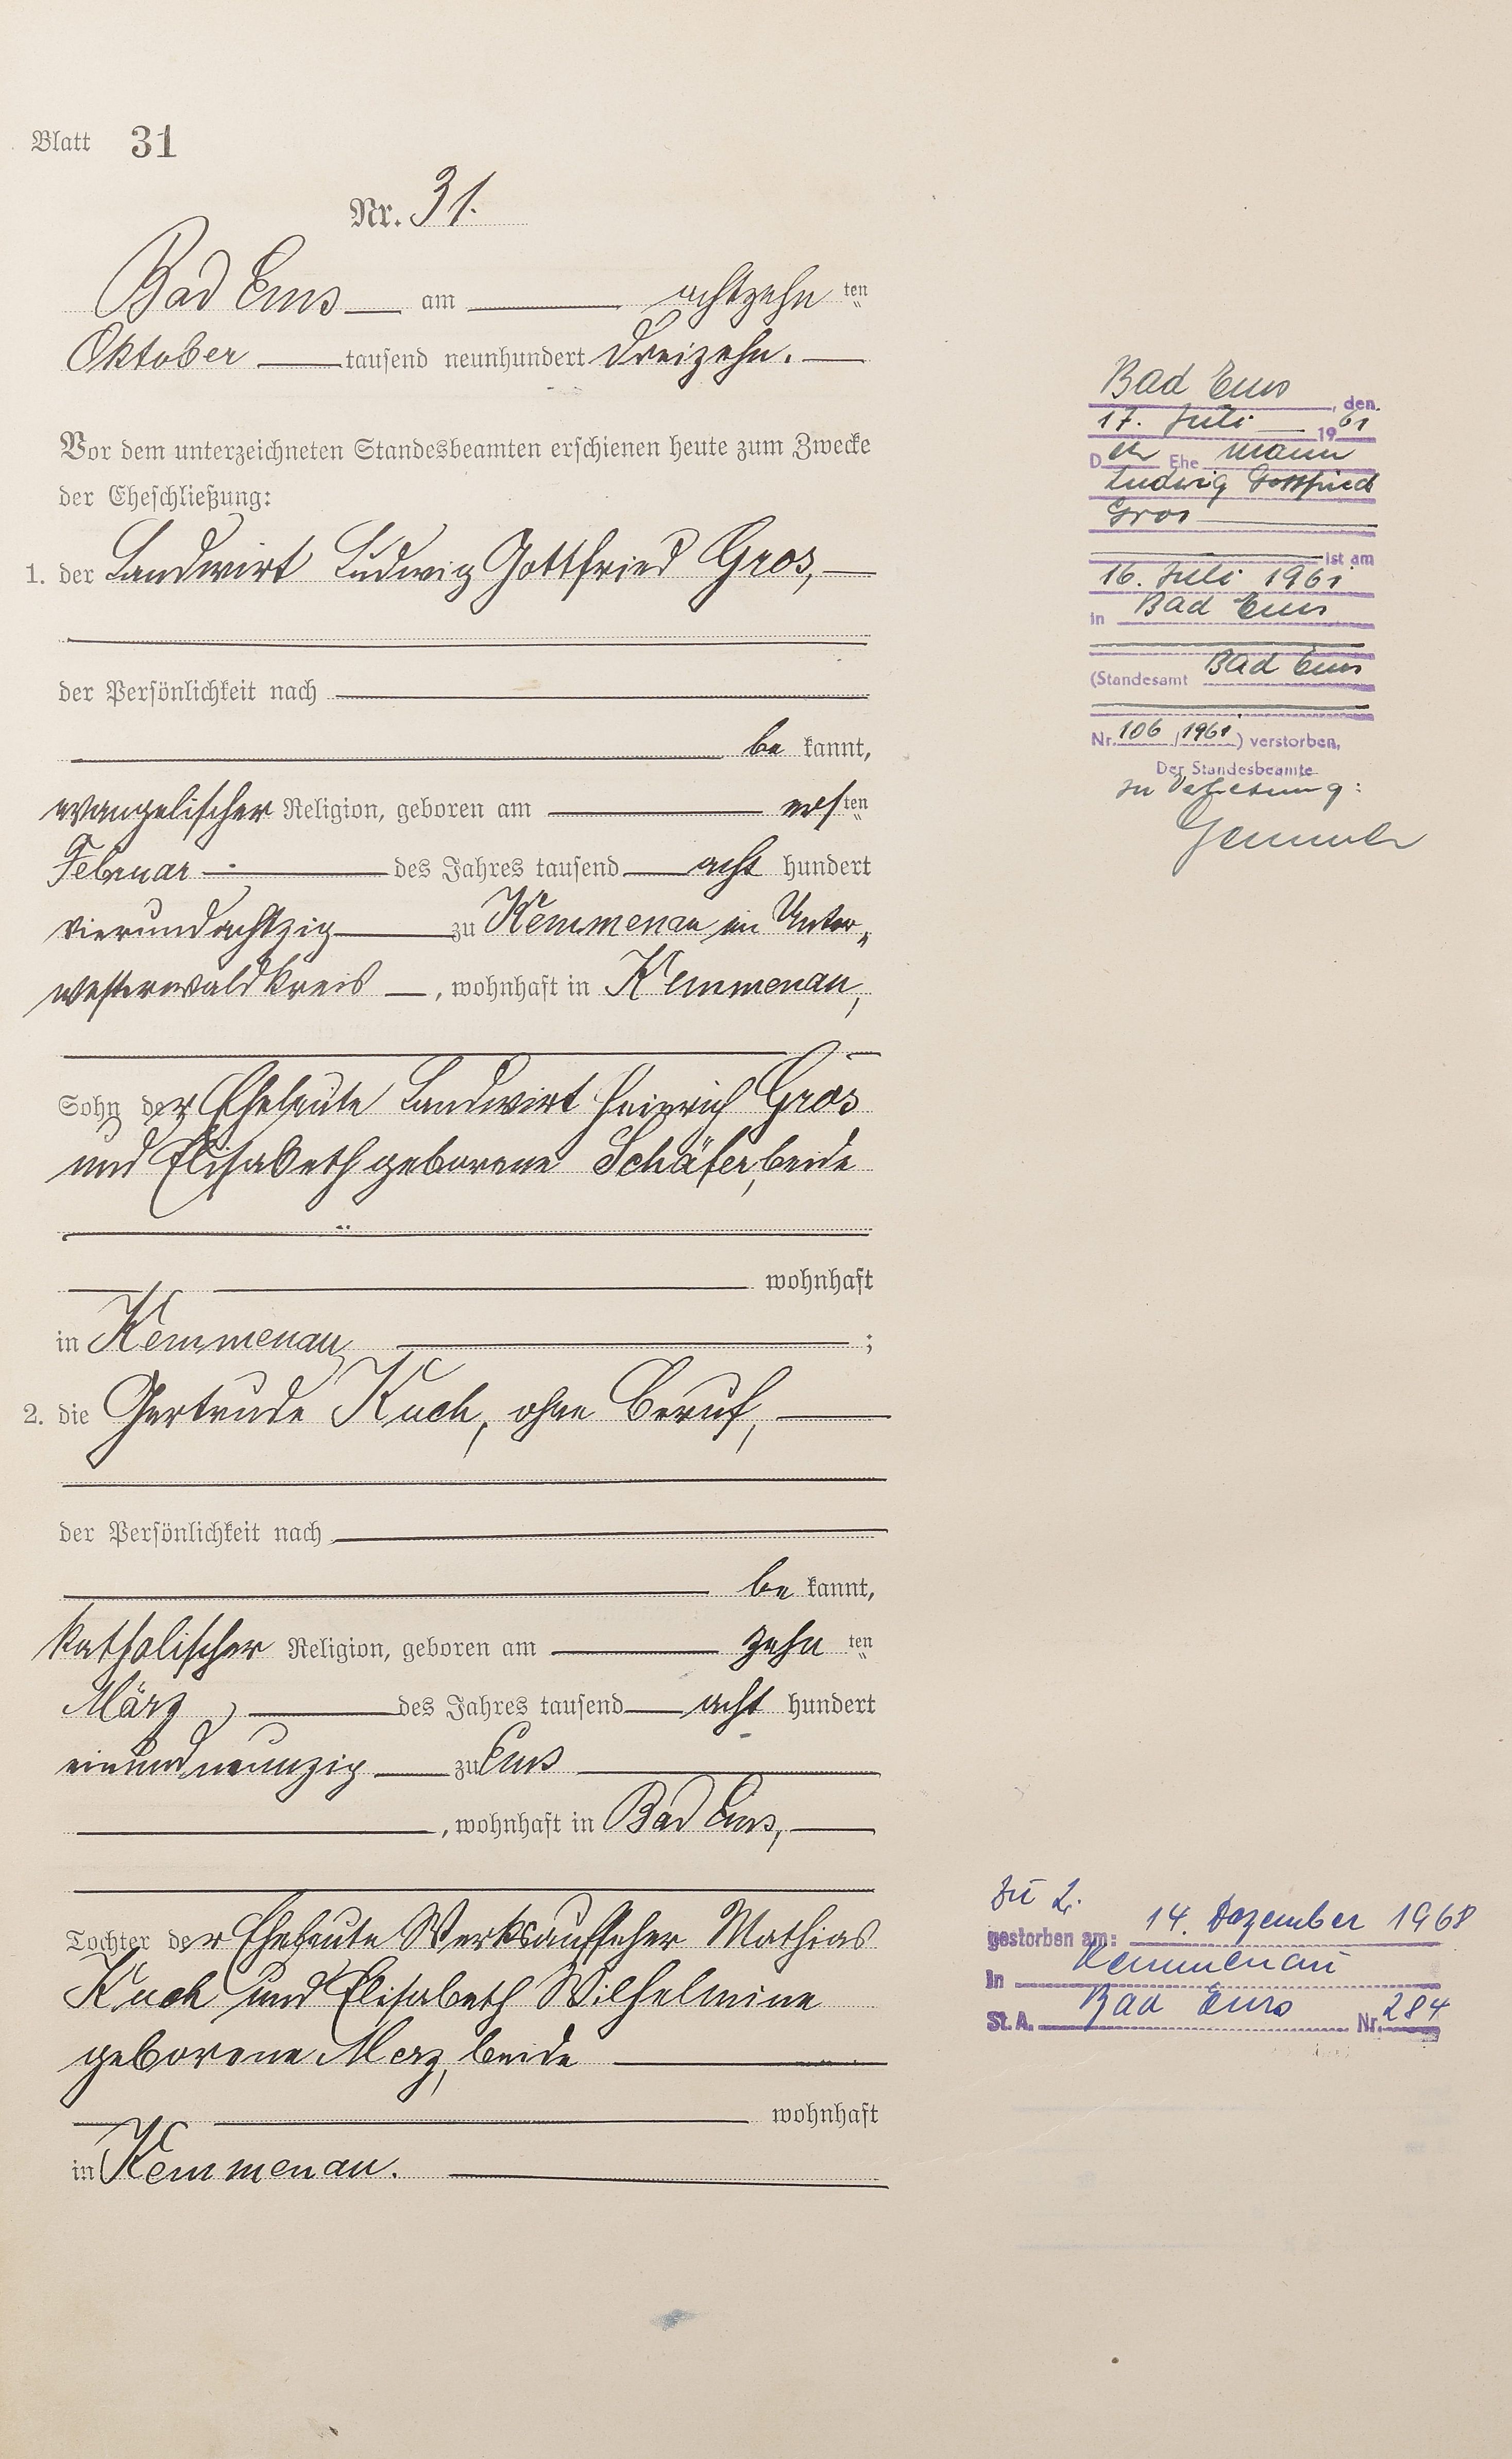 Blatt 31
Nr. 31.
Bad Ems am achtzehn ten
Oktober tausend neunhundert dreizehn.
Vor dem unterzeichneten Standesbeamten erschienen heute zum Zwecke
der Eheschließung:
1. der Landwirt Ludwig Gottfried Gros,
der Persönlichkeit nach
be kannt,
evangelischer Religion, geboren am ersten
Februar des Jahres tausend acht hundert
vierundachtzig zu Kemmenau im Unter„
westerwaldkreis, wohnhaft in Kemmenau,
Sohn der Eheleute Landwirt Heinrich Gros
und Elisabeth geborene Schäfer, beide
wohnhaft
in Kemmenau;
2. die Gertrude Kuch, ohne Beruf,
der Persönlichkeit nach
be kannt,
katholischer Religion, geboren am zehn ten
März des Jahres tausend acht hundert
einundneunzig zu Ems
, wohnhaft in Bad Ems,
Tochter der Eheleute Werksaufseher Mathias
Kuch und Elisabeth Wilhelmine
geborene Merz, beide
wohnhaft
in Kemmenau.
Bad Ems, den
17. Juli 1961
Der Ehe mann
Ludwig Gottfried
Gros
ist am
16. Juli 1961
in Bad Ems
(Standesamt Bad Ems
Nr. 106 / 1961) verstorben.
Der Standesbeamte
In Vertretung:
Zu 2.
gestorben am: 14. Dezember 1968
in Kemmenau
St. A. Bad Ems Nr. 284